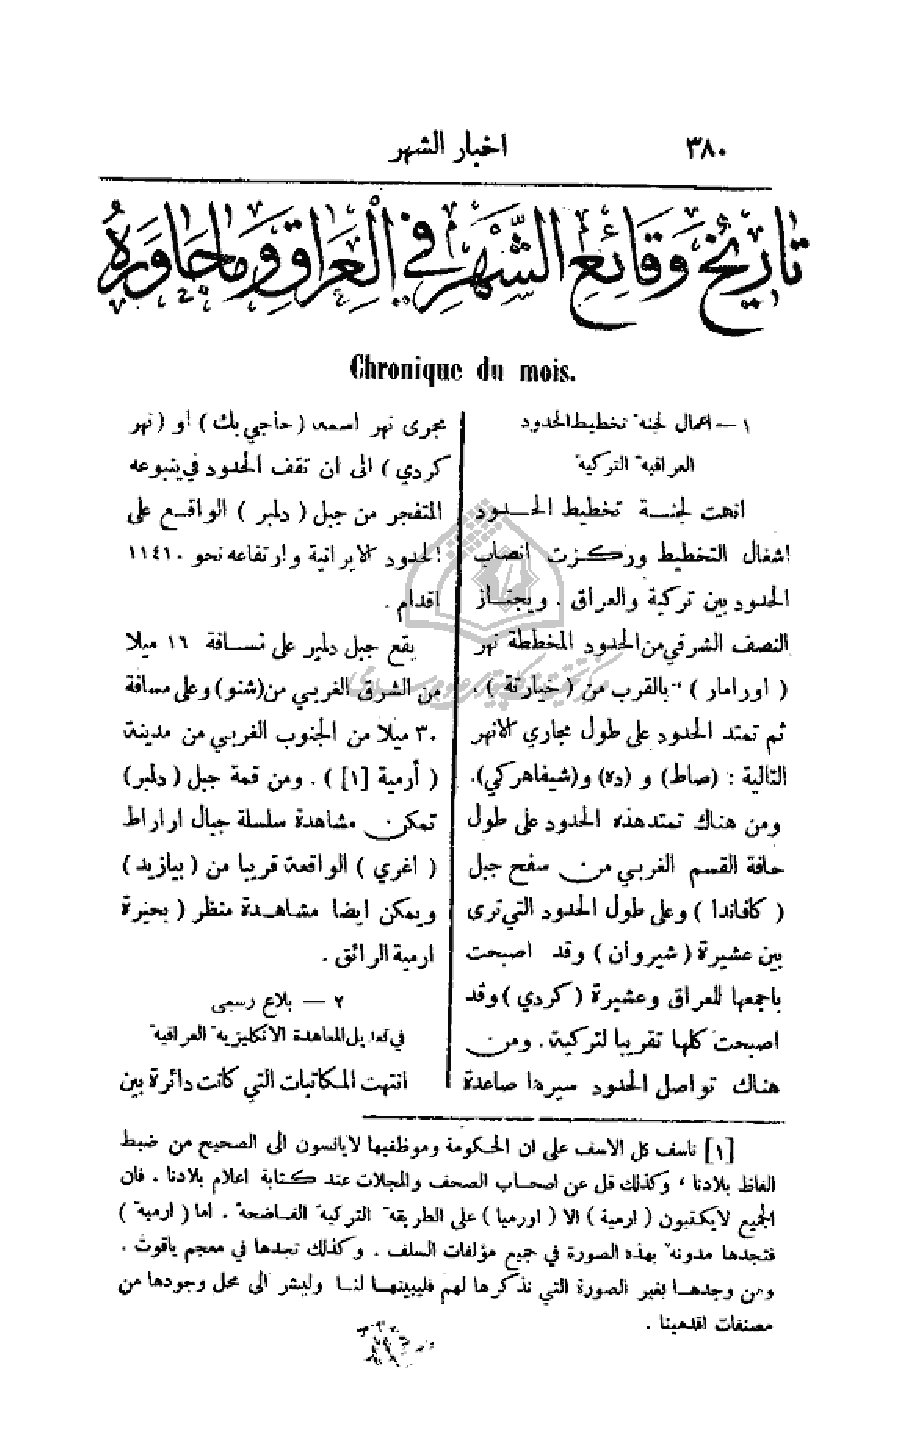 ٣٨٠
اخبار الشهر
تاريخ وقائع الشهر في العراق وما جاوره
Chronique du mois.
١ — اعمال لجنة تخطيط الحدود
العراقية التركية
انهت لجنــة تخطيط الحــدود
اشغال التخطيط وركــزت انصاب
الحدود بين تركية والعراق . ويجتــاز
النصف الشرقي من الحدود المخططة نهر
( اورامار ) بالقرب من ( خيارتة ) .
ثم تمتد الحدود على طول مجاري الانهر
التالية : (صاط) و (ده) و(شيفاهركي).
ومن هناك تمتد هذه الحدود على طول
حافة القسم الغربي من سفح جبل
( كافاندا ) وعلى طول الحدود التي ترى
بين عشيرة ( شيروان ) وقد اصبحت
باجمعها للعراق وعشيرة ( كردي ) وقد
اصبحت كلها تقريبا لتركية . ومن
هناك تواصل الحدود سيرها صاعدة
مجرى نهر اسمه ( حاجي بك ) او ( نهر
كردي ) الى ان تقف الحدود في ينبوعه
المتفجر من جبل ( دلمبر ) الواقــع على
الحدود الايرانية وارتفاعه نحو ١١٤١٠
اقدام .
يقع جبل دلمبر على مســافة ١٦ ميلا
من الشرق الغربي من (شنو) وعلى مسافة
٣٠ ميلا من الجنوب الغربي من مدينة
( أرمية [١] ) . ومن قمة جبل ( دلمبر)
تمكن مشاهدة سلسلة جبال اراراط
( اغري ) الواقعة قريبا من ( بيازيد )
ويمكن ايضا مشاهــدة منظر ( بحيرة
ارمية الرائق .
٢ — بلاغ رسمي
في تعديل المعاهدة الانكليزية العراقية
انتهت المكاتبات التي كانت دائرة بين
[١] نأسف كل الاسف على ان الحكومة وموظفيها لايأنسون الى الصحيح من ضبط
الفاظ بلادنا ، وكذلك قل عن اصحــاب الصحف والمجلات عند كــتابة اعلام بلادنا . فان
الجميع لايكتبون ( ارمية ) الا ( اورميا ) على الطريقة التركية الفــاضحة . اما ( ارمية )
فتجدها مدونة بهذه الصورة في جميع مؤلفات السلف . وكذلك تجدها في معجم ياقوت .
ومن وجدهــا بغير الصورة التي نذكرها لهم فليبينهــا لنــا وليشر الى محل وجودها من
مصنفات اقدمينا .